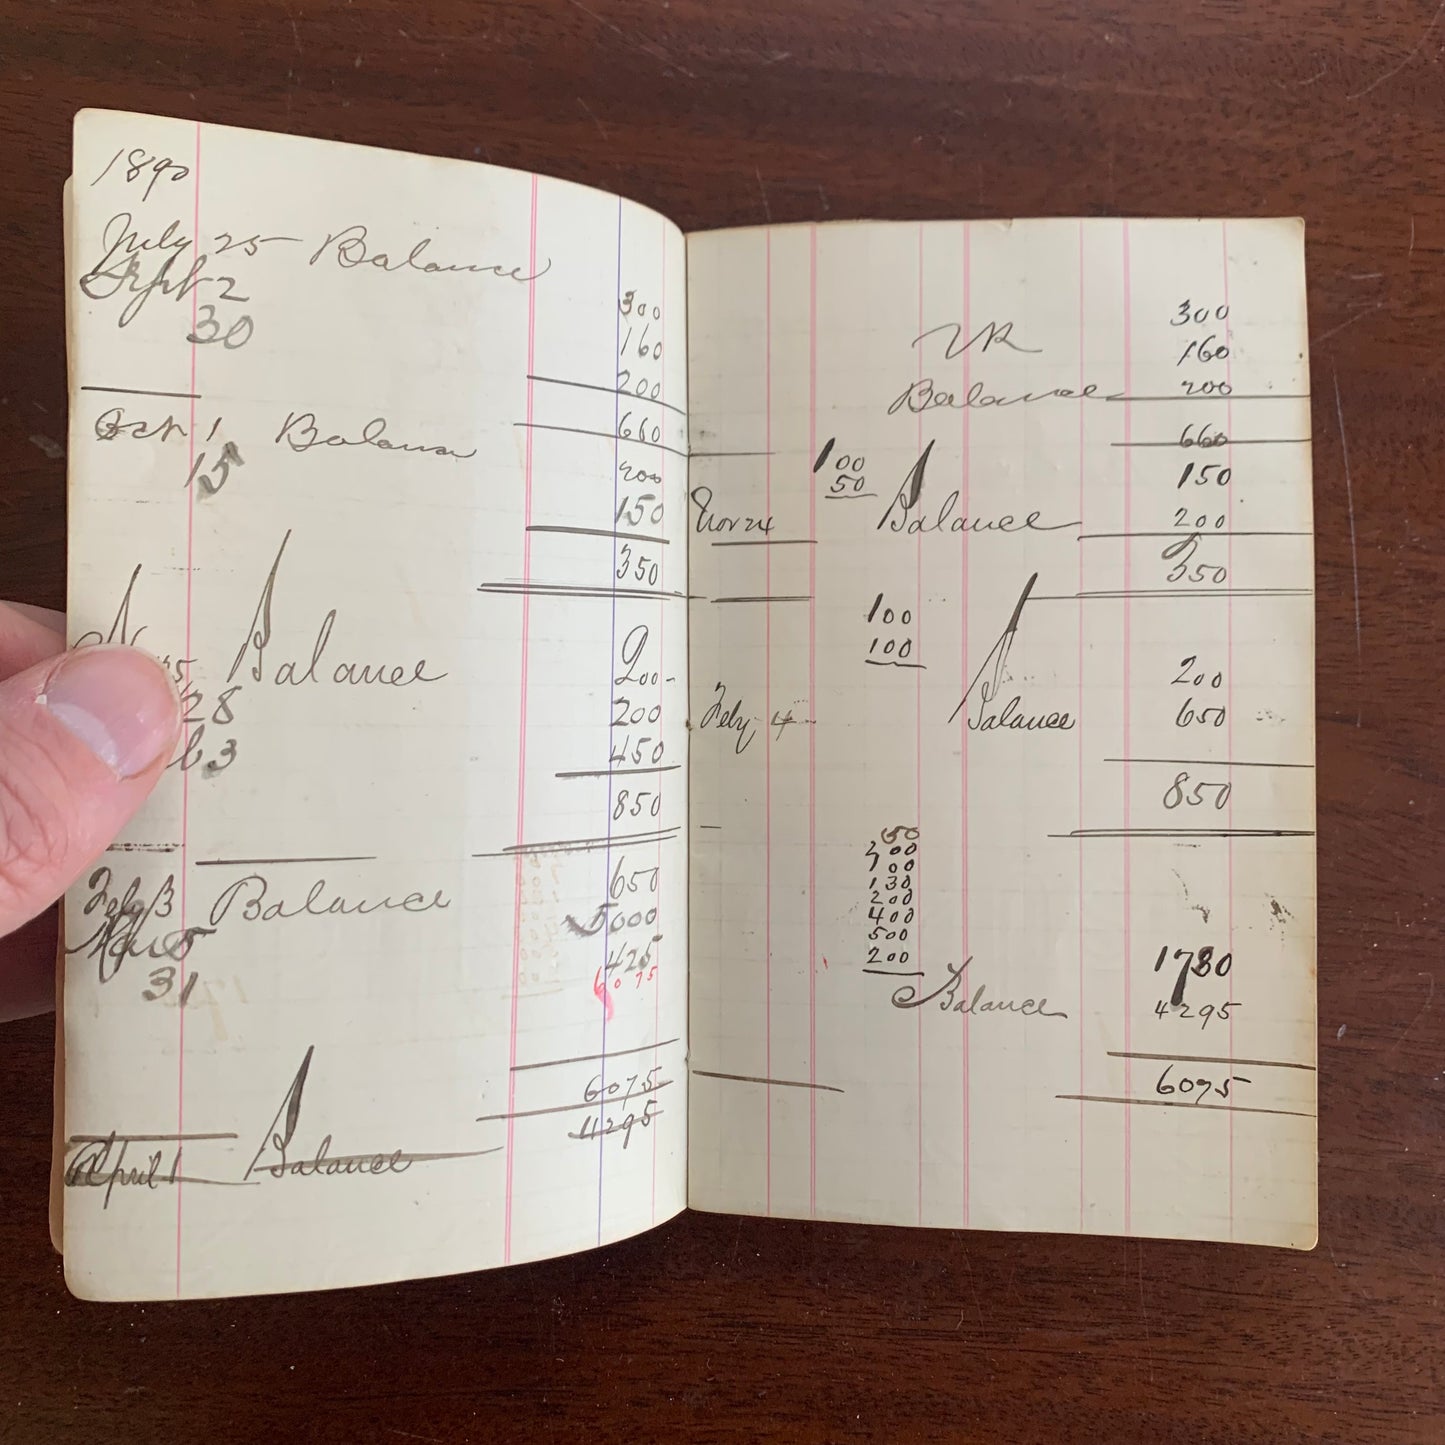 1890
July 25 Balance
Sept 2 300
30 160
200
660
Oct 1 Balance 200
15 150
350
Balance 200-
28 200
3 450
850
Feby 3 Balance 650
Mar 5 5000
31 425
6075
6075
April 1 Balance 4295
300
160
Balance 200
660
100 150
50
Nov 24 Balance 200
350
100
100 200
Feby 4 Balance 650
850
50
200
100
130
200
400
500
200 1780
Balance 4295
6075